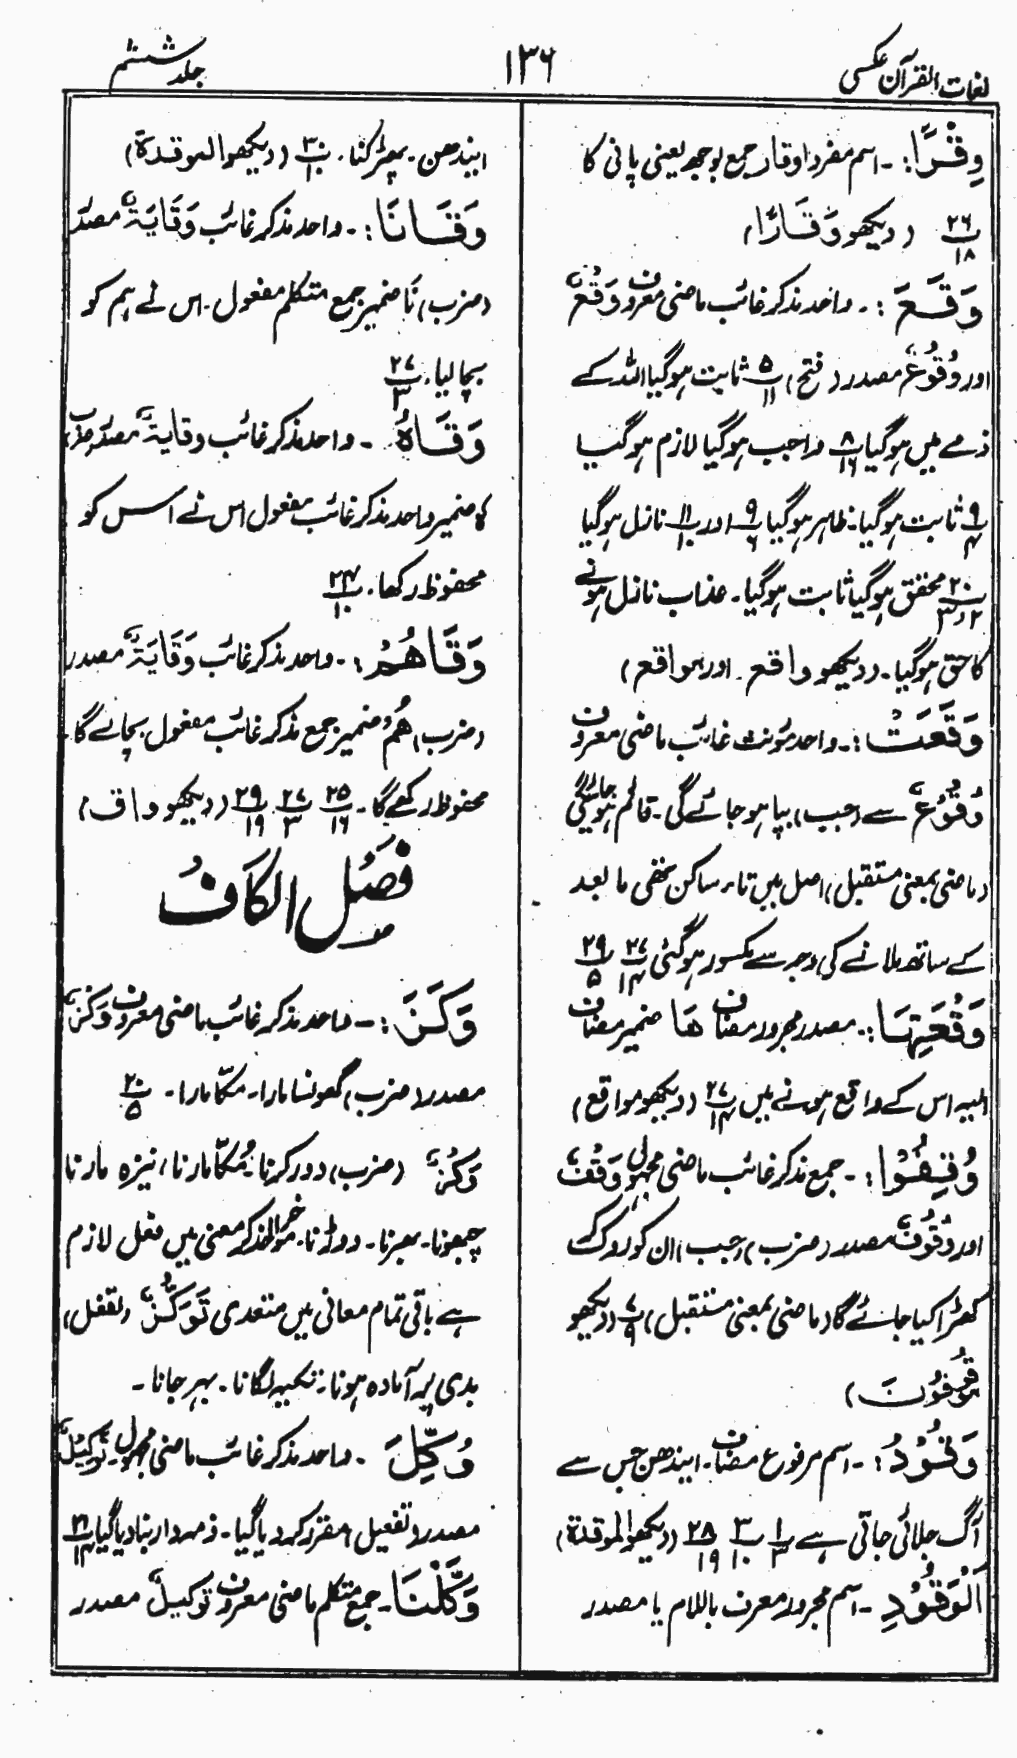 لغات القرآن عکسی
۱۳۶
جلد ششم
وِقْرًا: ۔ اسم مفرد اوقار جمع بوجھ یعنی پانی کا
۲۶ب۱۸ (دیکھو وَقَارًا)
وَقَعَ : ۔ واحد مذکر غائب ماضی معروف وَقْعٌ
اور وُقُوْعٌ مصدر (فتح) ۵ب۱۱ ثابت ہوگیا اللہ کے
ذمے میں ہوگیا ۸ب۱۶ واجب ہوگیا لازم ہوگیا
۹ب۴ ثابت ہوگیا۔ ظاہر ہوگیا ۹ب۶ اور ۱۱ب۱۰ نازل ہوگیا
۲۰ب۲و۳ محقق ہوگیا ثابت ہوگیا۔ عذاب نازل ہونے
کا حق ہوگیا۔ (دیکھو واقع۔ اور مواقع)
وَقَعَتْ :۔ واحد مؤنث غائب ماضی معروف
وُقُوْعٌ سے (جب) بپا ہو جائے گی۔ قائم ہو جائے گی
(ماضی بمعنی مستقبل) اصل میں تاء ساکن تھی ما بعد
کے ساتھ ملانے کی وجہ سے مکسور ہوگئی ۲۷ب۱۴ ۲۹ب۵
وَقْعَتِهَا:۔ مصدر مجرور مضاف هَا ضمیر مضاف
الیہ اس کے واقع ہونے میں ۲۷ب۱۴ (دیکھو مواقع)
وُقِفُوْا: ۔ جمع مذکر غائب ماضی مجہول وَقْفٌ
اور وُقُوْفٌ مصدر (ضرب) (جب) ان کو روک کر
کھڑا کیا جائے گا (ماضی بمعنی مستقبل) ۷ب۹ (دیکھو
مَوْقُوْفُوْنَ)
وَقُوْدُ : ۔ اسم مرفوع مضاف۔ ایندھن جس سے
آگ جلائی جاتی ہے ۱ب۳ ۳ب۱۰ ۲۸ب۱۹ (دیکھو الموقدة)
اَلْوَقُوْدِ ۔ اسم مجرور معرف باللام یا مصدر
ایندھن۔ بھڑکنا۔ ۳۰ب۱۰ (دیکھو الموقدة)
وَقَانَا :۔ واحد مذکر غائب وَقَایَةٌ مصدر
(ضرب) نَا ضمیر جمع متکلم مفعول۔ اس نے ہم کو
بچا لیا۔ ۲۷ب۳
وَقَاهُ ۔ واحد مذکر غائب وقایة مصدر (ضرب)
هُ ضمیر واحد مذکر غائب مفعول اس نے اس کو
محفوظ رکھا۔ ۲۴ب۱۰
وَقَاهُمْ :۔ واحد مذکر غائب وَقَایَةٌ مصدر
(ضرب) هُمْ ضمیر جمع مذکر غائب مفعول بچالے گا۔
محفوظ رکھے گا۔ ۲۵ب۱۶ ۲۷ب۳ ۲۹ب۱۹ (دیکھو واق)
فصل الکاف
وَكَزَ :۔ واحد مذکر غائب ماضی معروف وَكْزٌ
مصدر (ضرب) گھونسا مارا۔ مکا مارا۔ ۲۰ب۵
وَكْزٌ (ضرب) دور کرنا۔ مُکّا مارنا، نیزہ مارنا
چبھونا۔ بھرنا۔ دوڑنا۔ مؤخر الذکر معنی میں فعل لازم
ہے باقی تمام معانی میں متعدی تَوَكُّزٌ (تفعل)
بدی پر آمادہ ہونا۔ تکیہ لگانا۔ بھر جانا۔
وُكِّلَ ۔ واحد مذکر غائب ماضی مجہول۔ تَوْکِیْلٌ
مصدر (تفعیل) مقرر کر دیا گیا۔ ذمہ دار بنا دیا گیا ۲۱ب۱۴
وَكَّلْنَا۔ جمع متکلم ماضی معروف توکیلٌ مصدر